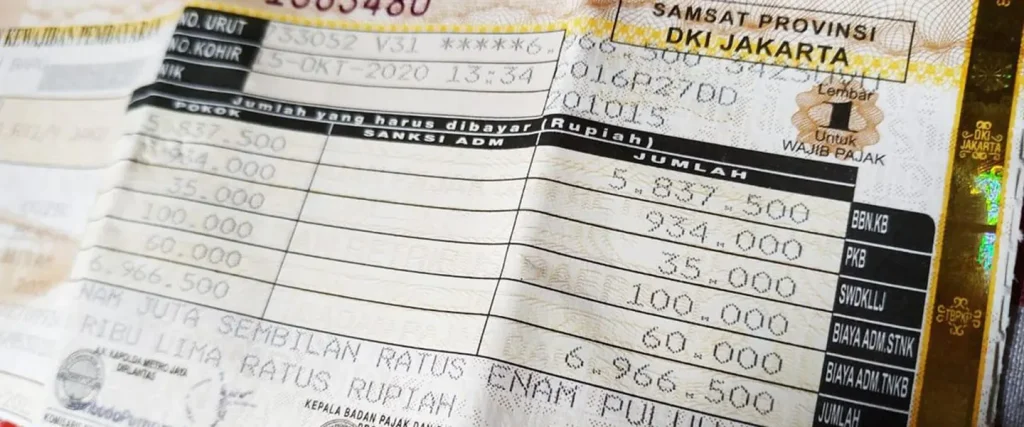 1683480
KEWAJIBAN PEMBAYARAN
SAMSAT PROVINSI
DKI JAKARTA
NO. URUT 33052 V31 *****6.966.500
NO.KOHIR
5-OKT-2020 13:34 2016P27DD
NIK 201015
Lembar
1
Untuk
WAJIB PAJAK
Jumlah yang harus dibayar (Rupiah)
POKOK SANKSI ADM JUMLAH
5.837.500 5.837.500 BBN.KB
934.000 934.000 PKB
35.000 35.000 SWDKLLJ
100.000 100.000 BIAYA ADM.STNK
60.000 60.000 BIAYA ADM.TNKB
6.966.500 6.966.500 JUMLAH
NAM JUTA SEMBILAN RATUS ENAM PULUH
RIBU LIMA RATUS RUPIAH
KAPOLDA METRO JAYA
DIRLANTAS
KEPALA BADAN PAJAK DAN
DKI
JAKARTA